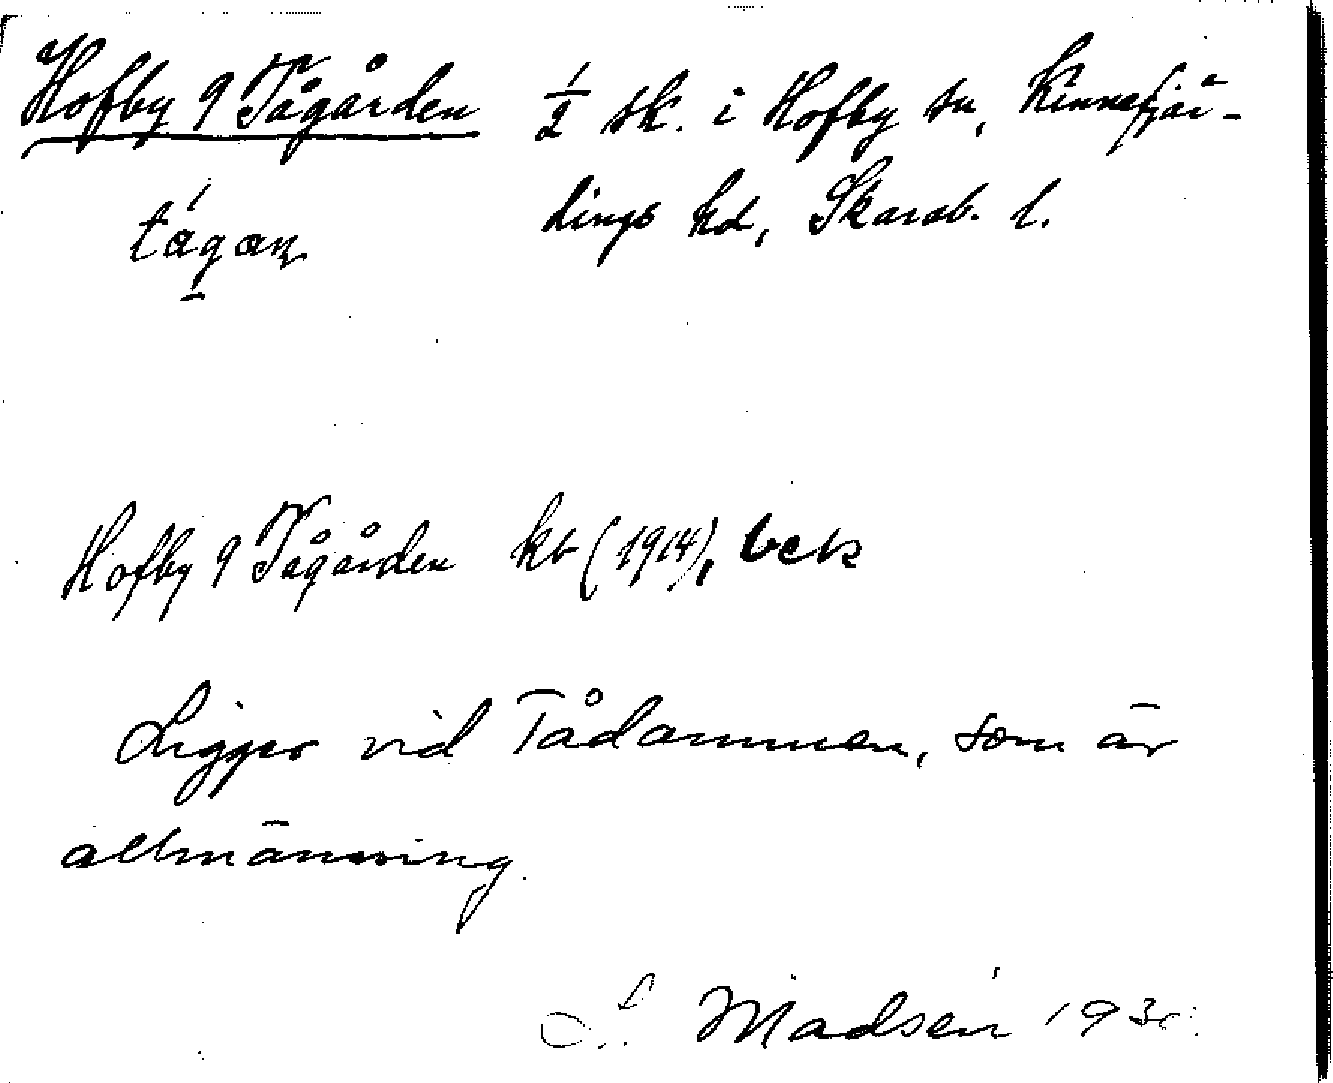 Hofby 9 Tågården ½ sk. i Hofby sn, Kinnefjär-
dings hd, Skarab. l.
tågan
Hofby 9 Tågården kb (1914), bek
Ligger vid Tådammen, som är
allmänning.
Madsén